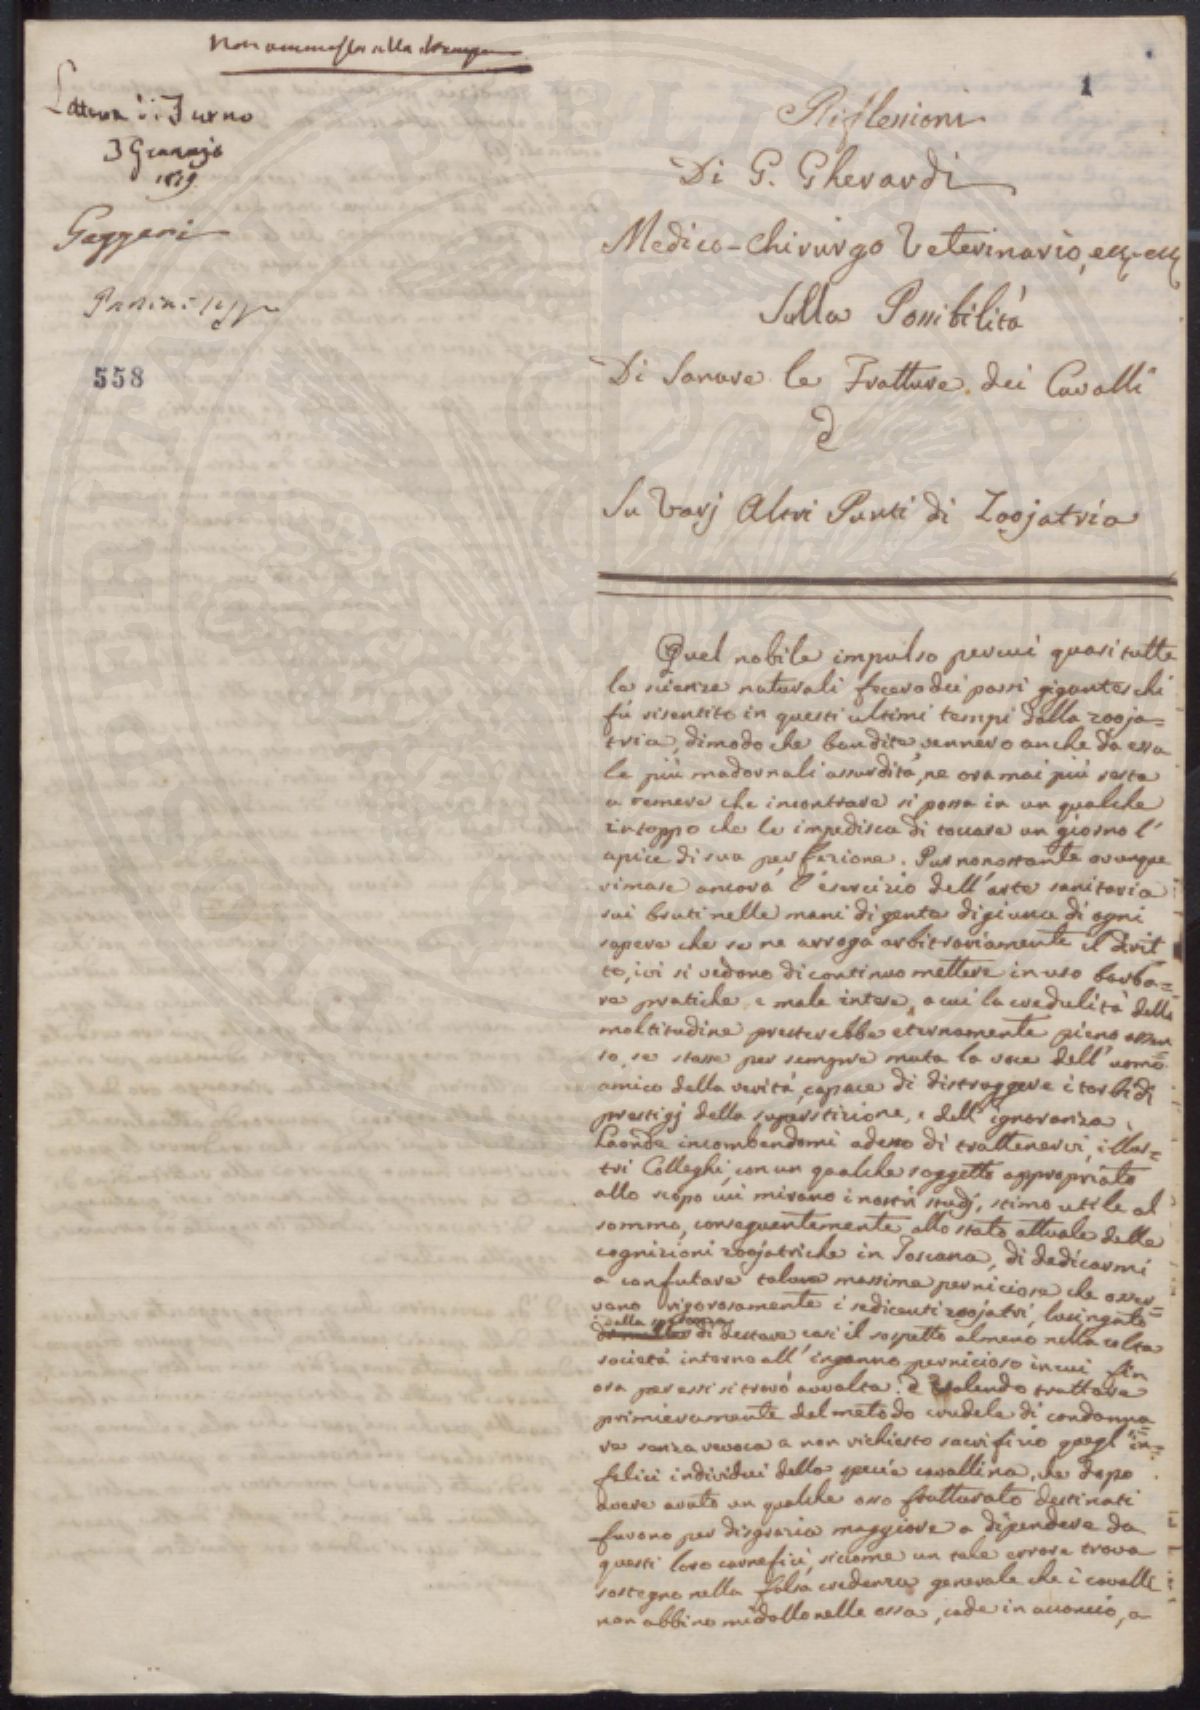 Non ammessa alla stampa
Lettura di Turno
3 Gennajo
1819
Gazzeri
558
1
Riflessioni
Di G. Gherardi
Medico-Chirurgo Veterinario, ecc. ecc
Sulla Possibilità
Di Sanare le Fratture dei Cavalli
E
Su Varj Altri Punti di Zoojatria
Quel nobile impulso per cui quasi tutte
le scienze naturali fecero dei passi giganteschi
fù risentito in questi ultimi tempi dalla zooja=
tria, dimodo che bandite vennero anche da essa
le più madornali assurdità, ne oramai più resta
a temere che incontrare si possa in un qualche
intoppo che le impedisca di toccare un giorno l'
apice di sua perfezione. Pur nonostante ovunque
rimase ancora l'esercizio dell'arte sanitaria
sui bruti nelle mani di gente digiuna di ogni
sapere che se ne arroga arbitrariamente il dirit
to, ivi si vedono di continuo mettere in uso barba=
re pratiche e male intese, a cui la credulità della
moltitudine presterebbe eternamente pieno assen
so, se stasse per sempre muta la voce dell'uomo
amico della verità, capace di distruggere i torbidi
prestigj della superstizione, e dell'ignoranza.
Laonde incombendomi adesso di trattenervi, illus=
tri Colleghi, con un qualche soggetto appropriato
allo scopo cui mirano i nostri studj, stimo utile al
sommo, conseguentemente allo stato attuale delle
cognizioni zoojatriche in Toscana, di dedicarmi
a confutare talune massime perniciose che osser=
vano rigorosamente i sedicenti zoojatri, lusingato
dalla speranza
di destare così il sospetto almeno nella colta
società intorno all'inganno pernicioso in cui fin
ora per essi si trovò avvolta. E volendo trattare
primieramente del metodo crudele di condanna
re senza revoca a non richiesto sacrifizio quegl'in=
felici individui della specie cavallina, che dopo
avere avuto un qualche osso fratturato destinati
furono per disgrazia maggiore a dipendere da
questi loro carnefici, siccome un tale errore trova
sostegno nella falsa credenza generale che i cavalli
non abbino midollo nelle ossa, cade in acconcio, a